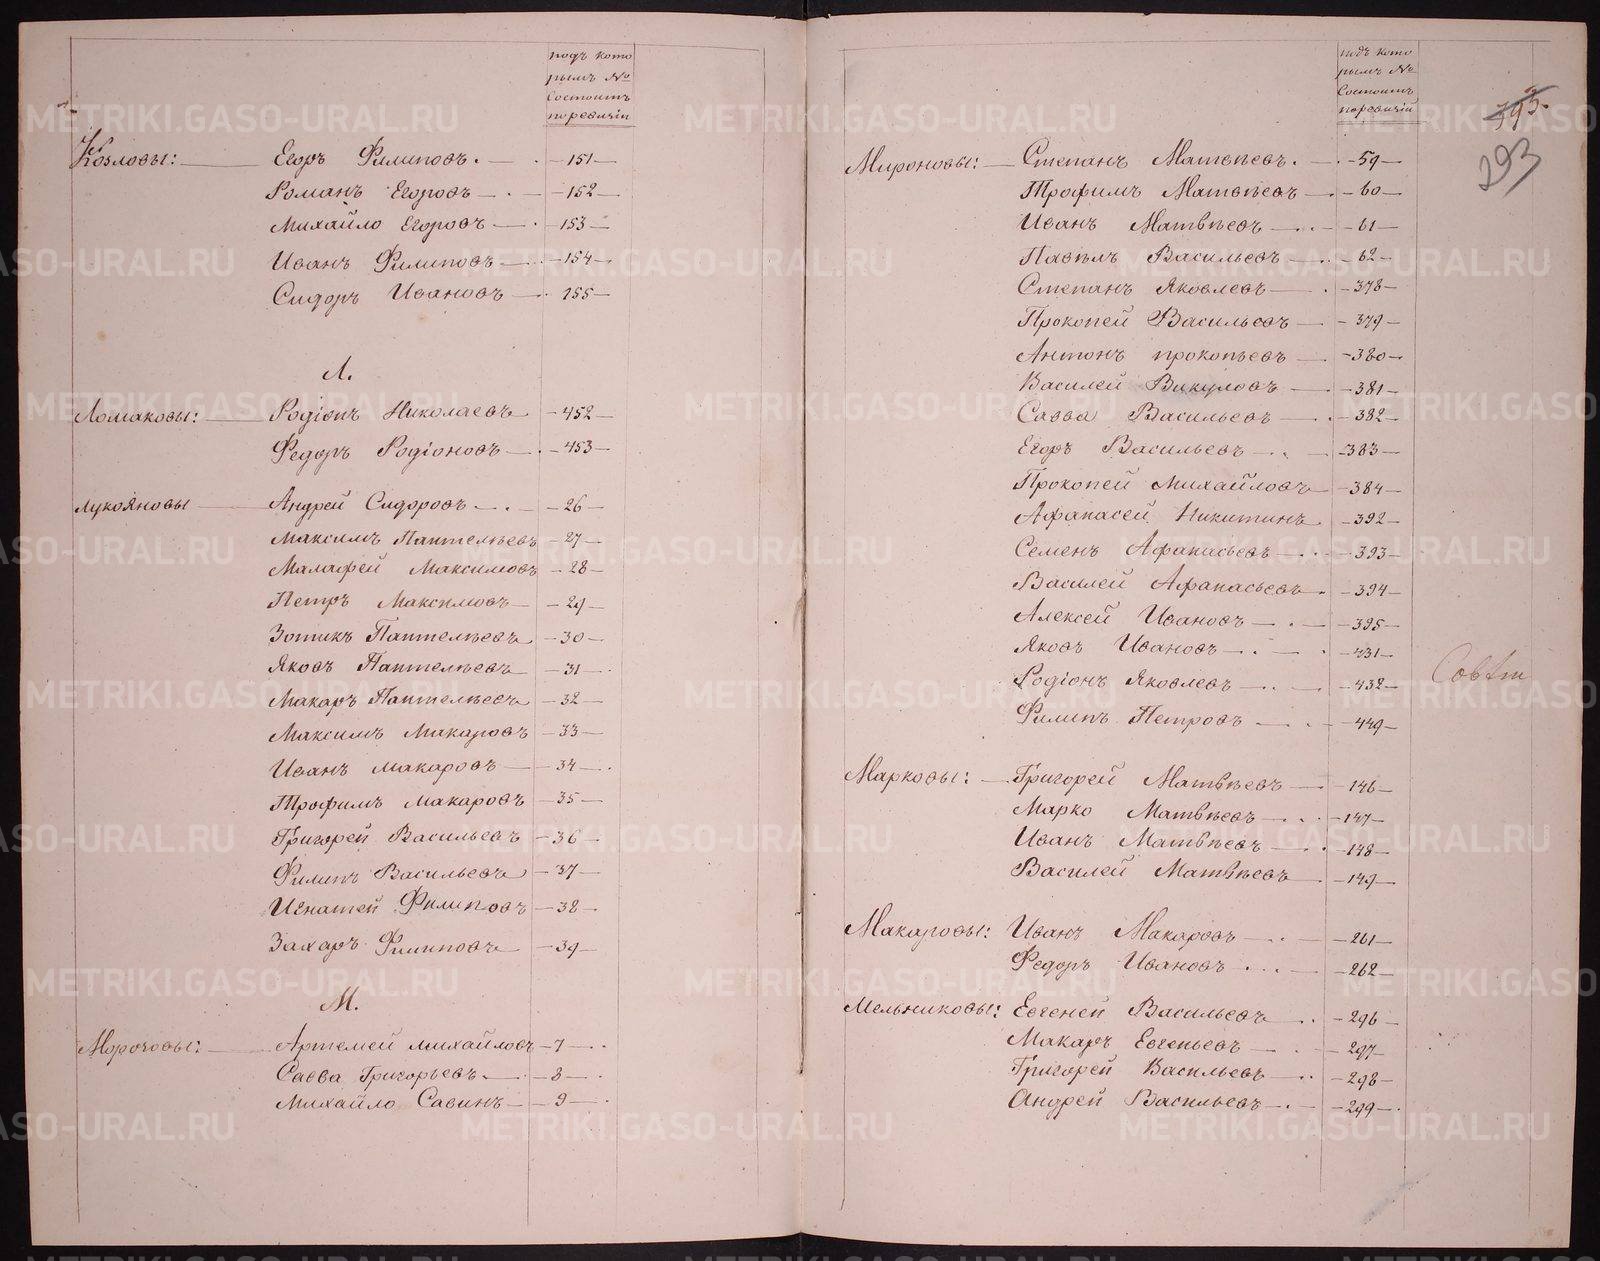 подъ кото
рымъ №
Состоитъ
поревизіи
Козловы: Егоръ Филиповъ. — 151 —
Романъ Егоровъ — 152 —
Михайло Егоровъ — 153 —
Иванъ Филиповъ — 154 —
Сидоръ Ивановъ — 155 —
Л.
Ломаковы: Родіонъ Николаевъ — 452 —
Федоръ Родіоновъ — 453 —
Лукояновы — Андрей Сидоровъ — 26 —
Максимъ Пантелѣевъ — 27 —
Малафей Максимовъ — 28 —
Петръ Максимовъ — 29 —
Зотикъ Пантелѣевъ — 30 —
Яковъ Пантелѣевъ — 31 —
Макаръ Пантелѣевъ — 32 —
Максимъ Макаровъ — 33 —
Иванъ Макаровъ — 34 —
Трофимъ Макаровъ — 35 —
Григорей Васильевъ — 36 —
Филипъ Васильевъ — 37 —
Игнатей Филиповъ — 38 —
Захаръ Филиповъ — 39 —
М.
Морозовы: Артемей Михайловъ — 7 —
Савва Григорьевъ — 8 —
Михайло Савинъ — 9 —
подъ кото
рымъ №
Состоитъ
поревизіи
293
Мироновы: — Степанъ Матвѣевъ. — 59 —
Трофимъ Матвѣевъ — 60 —
Иванъ Матвѣевъ — 61 —
Павѣлъ Васильевъ — 62 —
Степанъ Яковлевъ — 378 —
Прокопей Васильевъ — 379 —
Антонъ прокопьевъ — 380 —
Василей Викуловъ — 381 —
Савва Васильевъ — 382 —
Егоръ Васильевъ — 383 —
Прокопей Михайловъ — 384 —
Афанасей Никитинъ — 392 —
Семенъ Афанасьевъ — 393 —
Василей Афанасьевъ — 394 —
Алексей Ивановъ — 395 —
Яковъ Ивановъ — 431 —
Родіонъ Яковлевъ — 432 —
Филипъ Петровъ — 449 —
Марковы: — Григорей Матвѣевъ — 146 —
Марко Матвѣевъ — 147 —
Иванъ Матвѣевъ — 148 —
Василей Матвѣевъ — 149 —
Макаровы: Иванъ Макаровъ — 261 —
Федоръ Ивановъ — 262 —
Мельниковы: Евгеней Васильевъ — 296 —
Макаръ Евгеньевъ — 297 —
Григорей Васильевъ — 298 —
Андрей Васильевъ — 299 —
METRIKI.GASO-URAL.RU